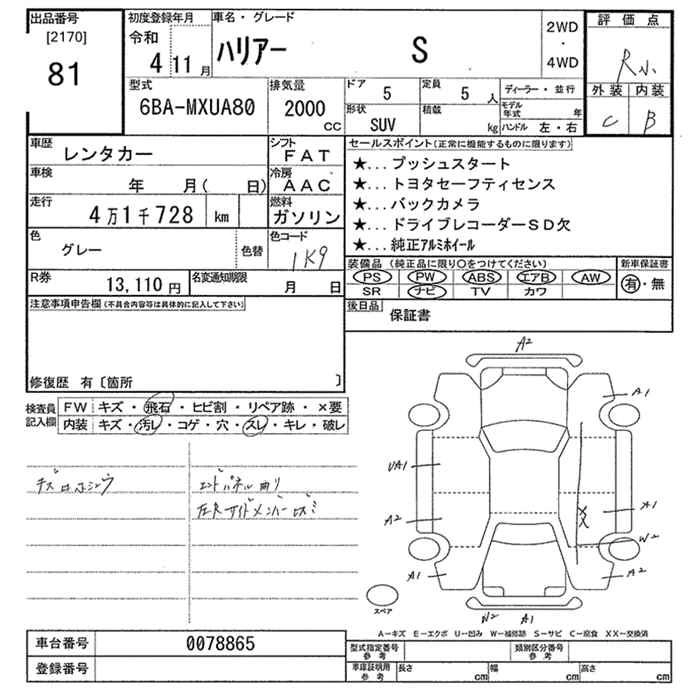 出品番号
[2170]
81
初度登録年月
令和
4 11月
車名・グレード
ハリアー S
2WD
・
4WD
評価点
R小
外装 内装
C B
型式
6BA-MXUA80
排気量
2000
CC
ドア 5
定員 5 人
形状
SUV
積載
kg
ディーラー・並行
モデル年式 年
ハンドル 左・右
車歴
レンタカー
シフト
FAT
車検
年 月( 日)
冷房
AAC
走行
4万1千728 km
燃料
ガソリン
色
グレー
色替
色コード
1K9
R券
13,110円
名変通知期限
月 日
セールスポイント(正常に機能するものに限ります)
★...プッシュスタート
★...トヨタセーフティセンス
★...バックカメラ
★...ドライブレコーダーSD欠
★...純正アルミホイール
装備品(純正品に限り〇をつけてください)
PS PW ABS エアB AW
SR ナビ TV カワ
新車保証書
有・無
後日品
保証書
注意事項申告欄(不具合内容等は具体的に記入して下さい)
修復歴 有〔箇所 〕
検査員記入欄
FW キズ・飛石・ヒビ割・リペア跡・×要
内装 キズ・汚レ・コゲ・穴・スレ・キレ・破レ
エンドパネル曲り
左右サイドメンバー凹ミ
A2
A1
UA1
A2
A1
XX
A1
W2
A2
W2 A1
スペア
A-キズ E-エクボ U-凹み W-補修跡 S-サビ C-腐食 XX-交換済
車台番号
0078865
登録番号
型式指定番号
参考
類別区分番号
参考
車庫証明用
参考
長さ cm
幅 cm
高さ cm